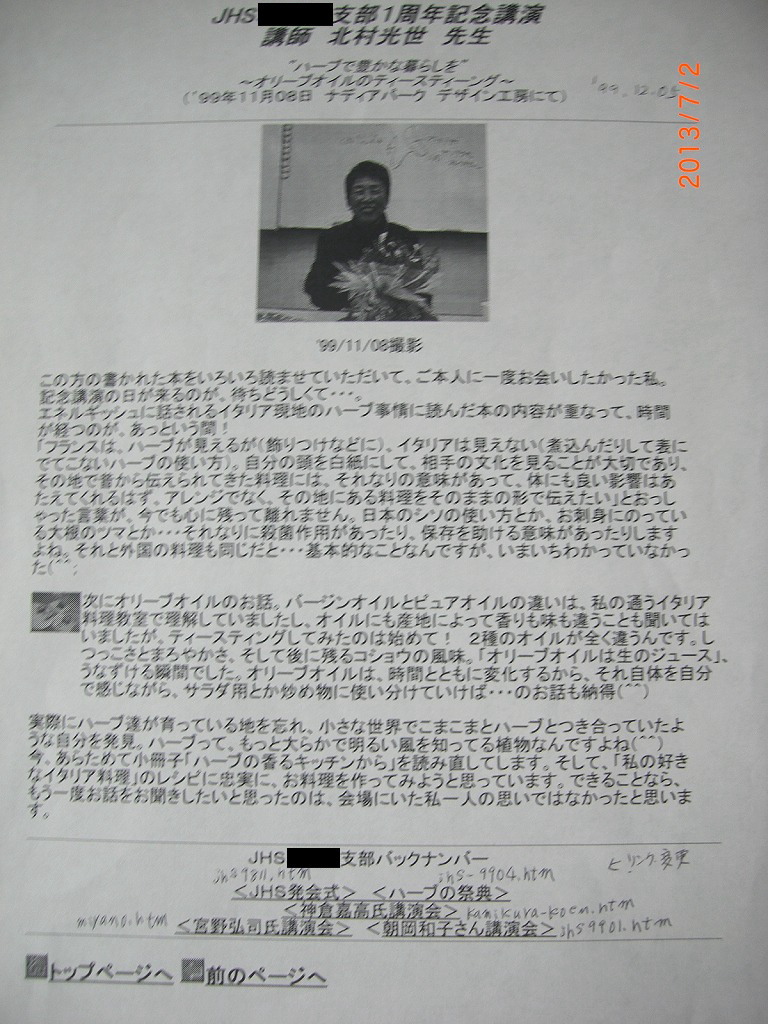 JHS 支部1周年記念講演
講師 北村光世 先生
"ハーブで豊かな暮らしを"
～オリーブオイルのテースティーング～
('99年11月08日 ナディアパーク デザイン工房にて)
'99.12.05
2013/7/2
'99/11/08撮影
この方の書かれた本をいろいろ読ませていただいて、ご本人に一度お会いしたかった私。
記念講演の日が来るのが、待ちどうしくて・・・。
エネルギッシュに話されるイタリア現地のハーブ事情に読んだ本の内容が重なって、時間
が経つのが、あっという間！
「フランスは、ハーブが見えるが(飾りつけなどに)、イタリアは見えない(煮込んだりして表に
でてこないハーブの使い方)。自分の頭を白紙にして、相手の文化を見ることが大切であり、
その地で昔から伝えられてきた料理には、それなりの意味があって、体にも良い影響はあ
たえてくれるはず、アレンジでなく、その地にある料理をそのままの形で伝えたい」とおっし
ゃった言葉が、今でも心に残って離れません。日本のシソの使い方とか、お刺身にのってい
る大根のツマとか・・・それなりに殺菌作用があったり、保存を助ける意味があったりします
よね。それと外国の料理も同じだと・・・基本的なことなんですが、いまいちわかっていなかっ
た(^^;
次にオリーブオイルのお話。バージンオイルとピュアオイルの違いは、私の通うイタリア
料理教室で理解していましたし、オイルにも産地によって香りも味も違うことも聞いては
いましたが、ティースティングしてみたのは始めて！ 2種のオイルが全く違うんです。し
つっこさとまろやかさ、そして後に残るコショウの風味。「オリーブオイルは生のジュース」、
うなずける瞬間でした。オリーブオイルは、時間とともに変化するから、それ自体を自分
で感じながら、サラダ用とか炒め物に使い分けていけば・・・のお話も納得(^^)
実際にハーブ達が育っている地を忘れ、小さな世界でこまこまとハーブとつき合っていたよ
うな自分を発見。ハーブって、もっと大らかで明るい風を知ってる植物なんですよね(^^)
今、あらためて小冊子「ハーブの香るキッチンから」を読み直してします。そして、「私の好き
なイタリア料理」のレシピに忠実に、お料理を作ってみようと思っています。できることなら、
もう一度お話をお聞きしたいと思ったのは、会場にいた私一人の思いではなかったと思いま
す。
JHS 支部バックナンバー
とリンク変更
jhs9811.htm jhs-9904.htm
＜JHS発会式＞ ＜ハーブの祭典＞
＜神倉嘉高氏講演会＞ kamikura-koen.htm
miyano.htm ＜宮野弘司氏講演会＞ ＜朝岡和子さん講演会＞ jhs9901.htm
トップページへ 前のページへ